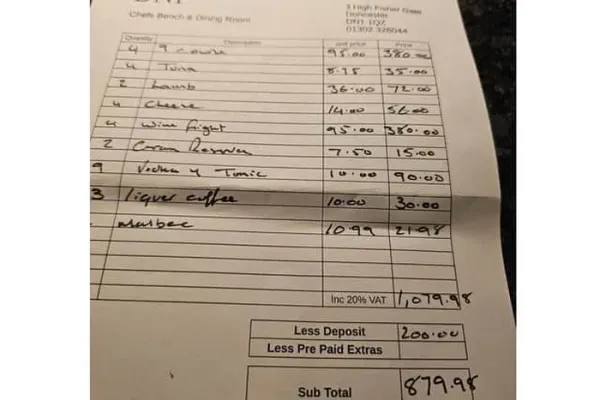 DN1
Chefs Bench & Dining Room
3 High Fisher Gate
Doncaster
DN1 1QZ
01302 326044
Quantity Description unit price Price
4 9 course 95.00 380.00
4 Tuna 8.75 35.00
2 Lamb 36.00 72.00
4 Cheese 14.00 56.00
4 wine flight 95.00 380.00
2 7.50 15.00
9 Vodka & Tonic 10.00 90.00
3 liquer coffee 10.00 30.00
malbec 10.99 21.98
Inc 20% VAT 1,079.98
Less Deposit 200.00
Less Pre Paid Extras
Sub Total 879.98